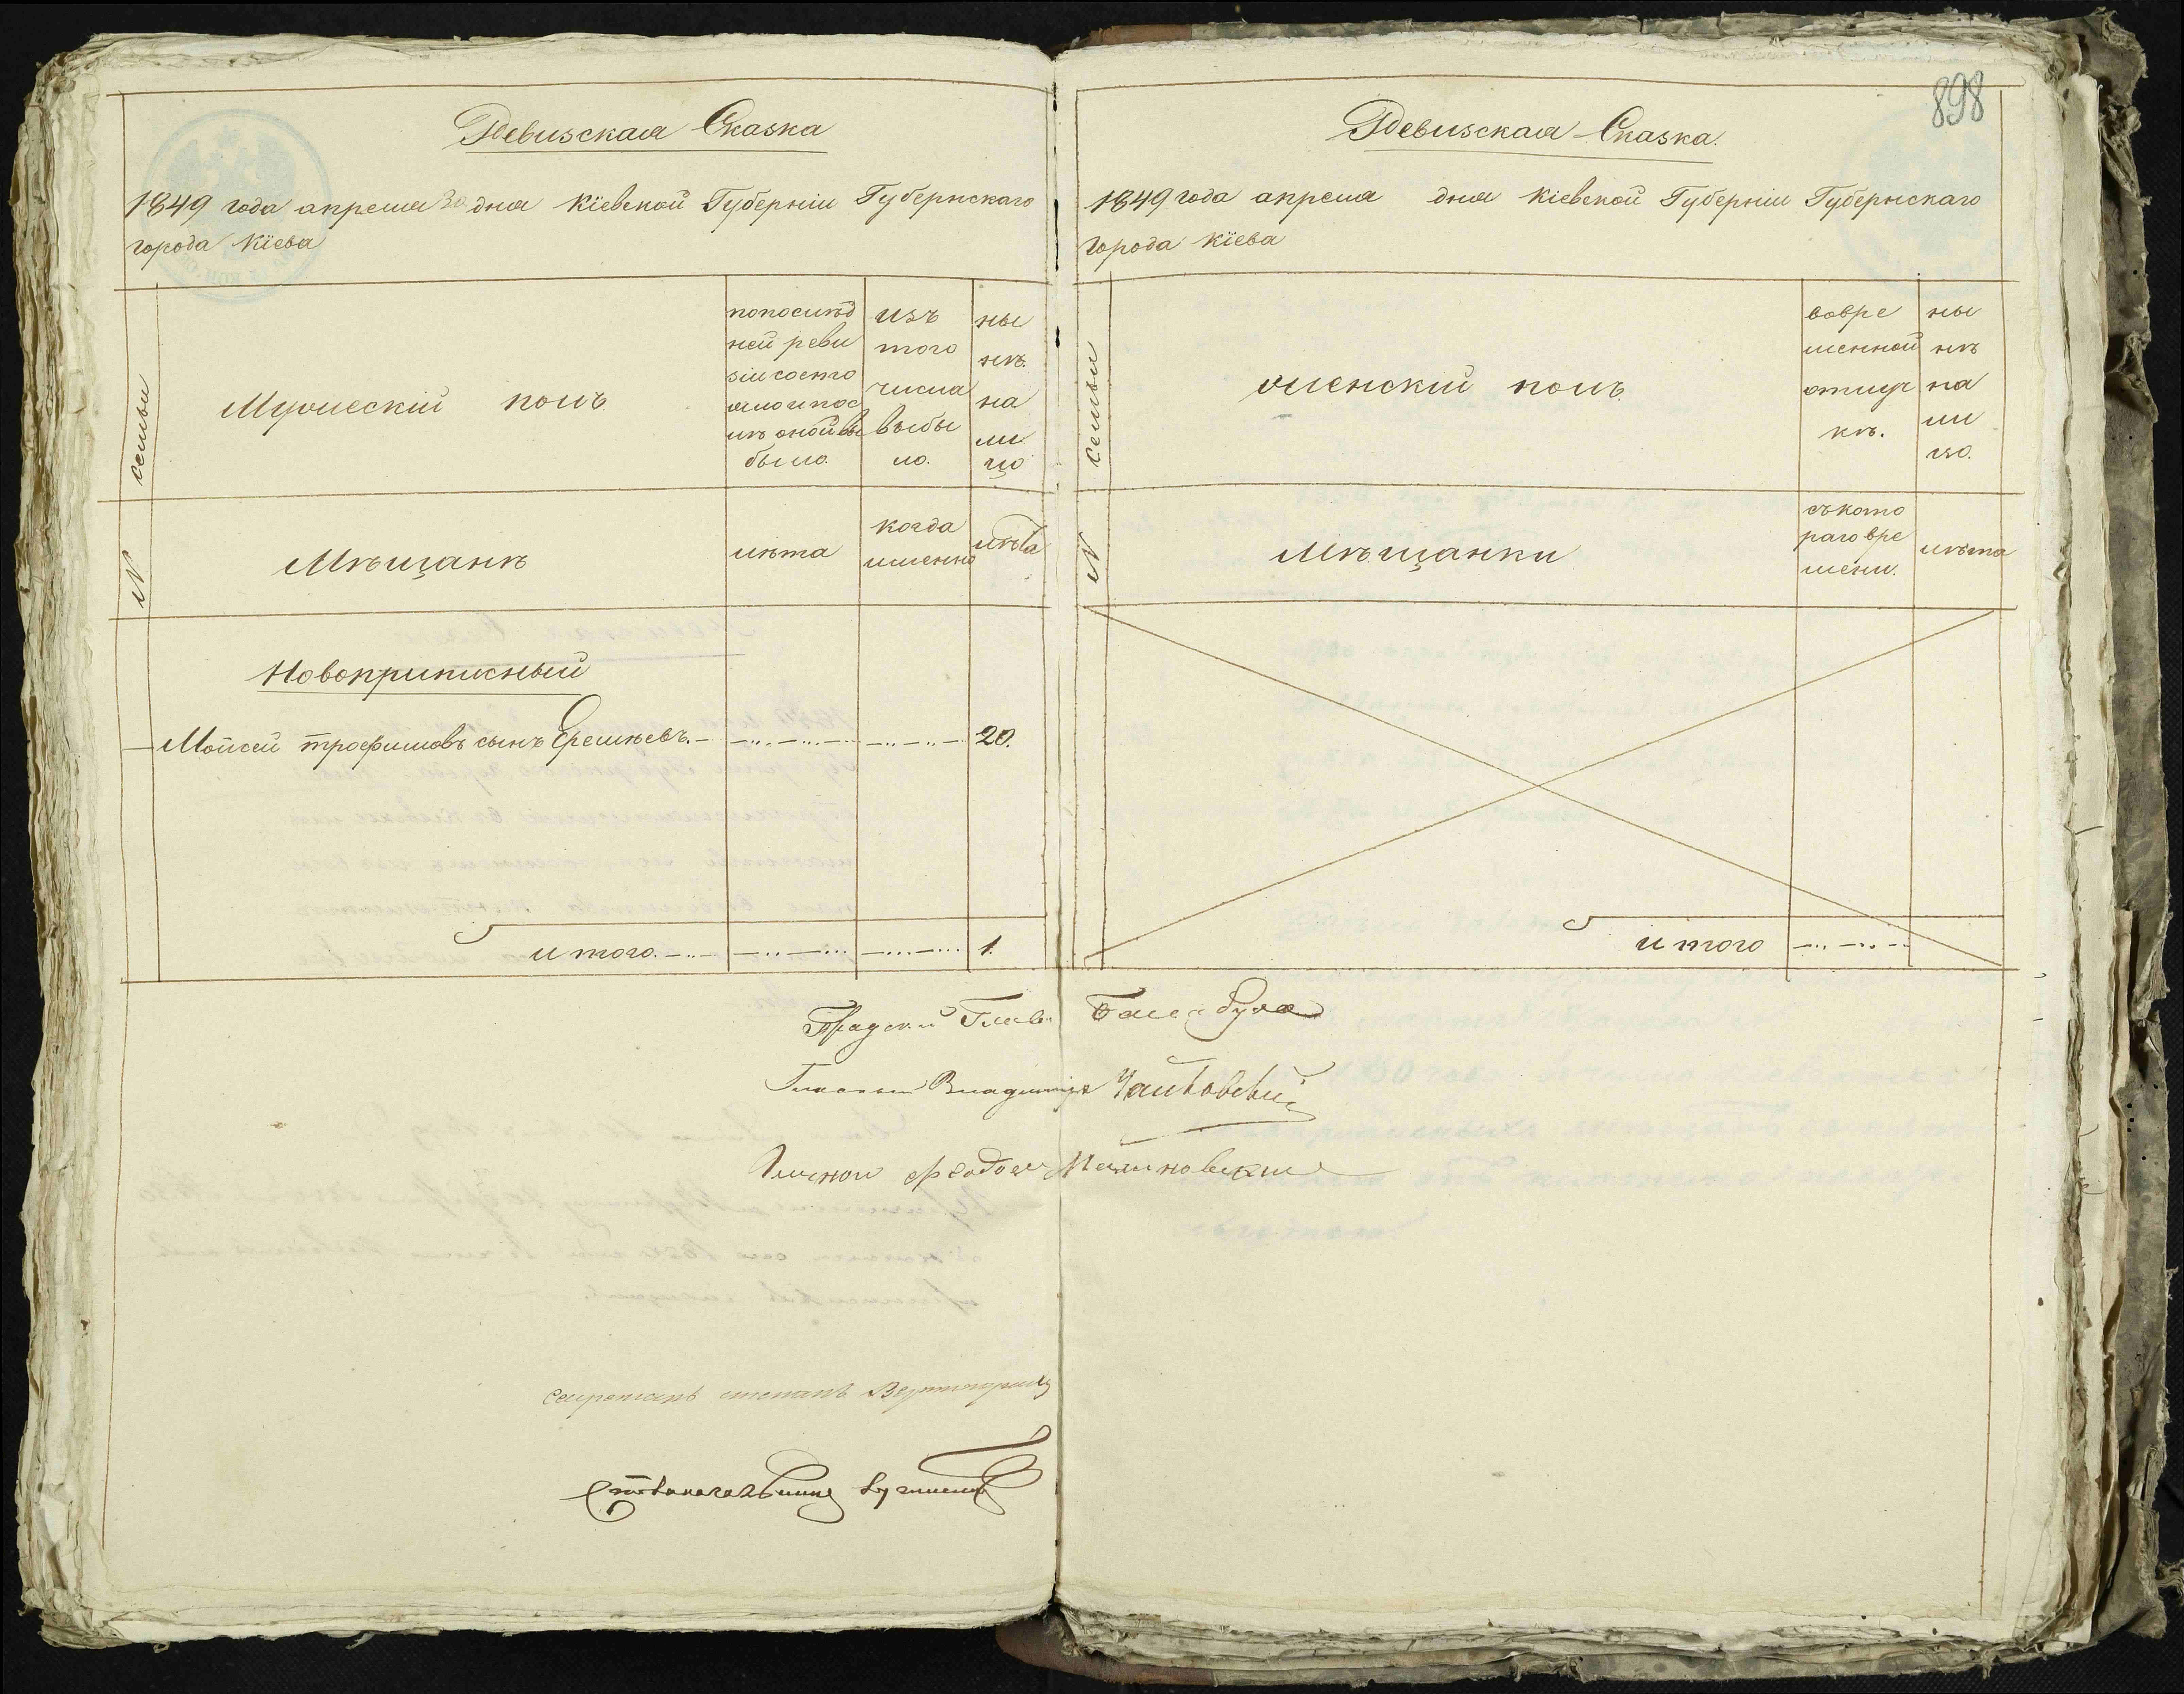 Ревизская Сказка
1849 года апреля 30 дня Кіевской Губерніи Губернскаго
города Кіева
семьи
№
Мужескій полъ
попослѣд
ней реви
зіи состо
яло и пос
лѣ оной вы
было.
изъ
того
числа
выбы
ло.
ны
нѣ.
на
ли
цо
Мѣщанъ
лѣта
когда
именно
лѣта
Новоприписный
Мойсей Трофимовъ сынъ Еремѣевъ.
20.
итого.
1.
898
Ревизская Сказка.
1849 года апреля дня Кіевской Губерніи Губернскаго
города Кіева
семьи
№
женскій полъ
вовре
менной
отлуч
кѣ.
ны
нѣ
на
ли
цо.
Мѣщанки
съкото
раго вре
мени.
лѣта
итого
Градскій Глава Балабуха
Гласный Владиміръ Чайковскій
Гласной Ѳеодоръ Малиновскій
Секретарь Степанъ
Столоначальникъ